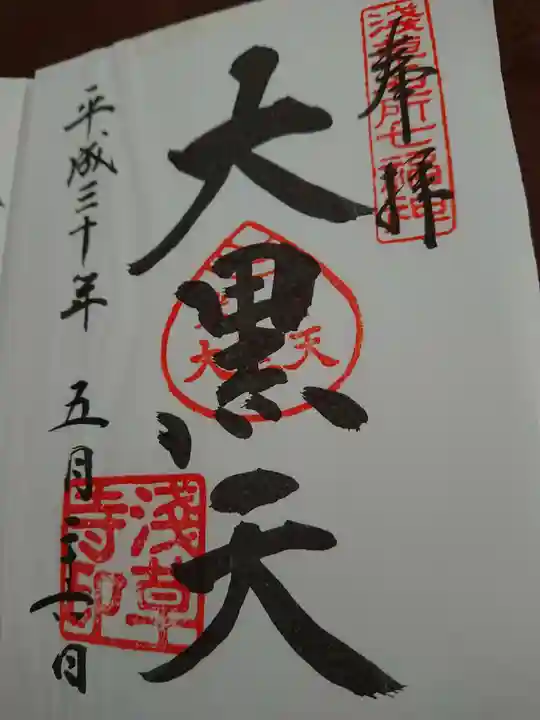 奉拝
淺草名所七福神
大黒天
淺草寺印
平成三十年五月二十六日